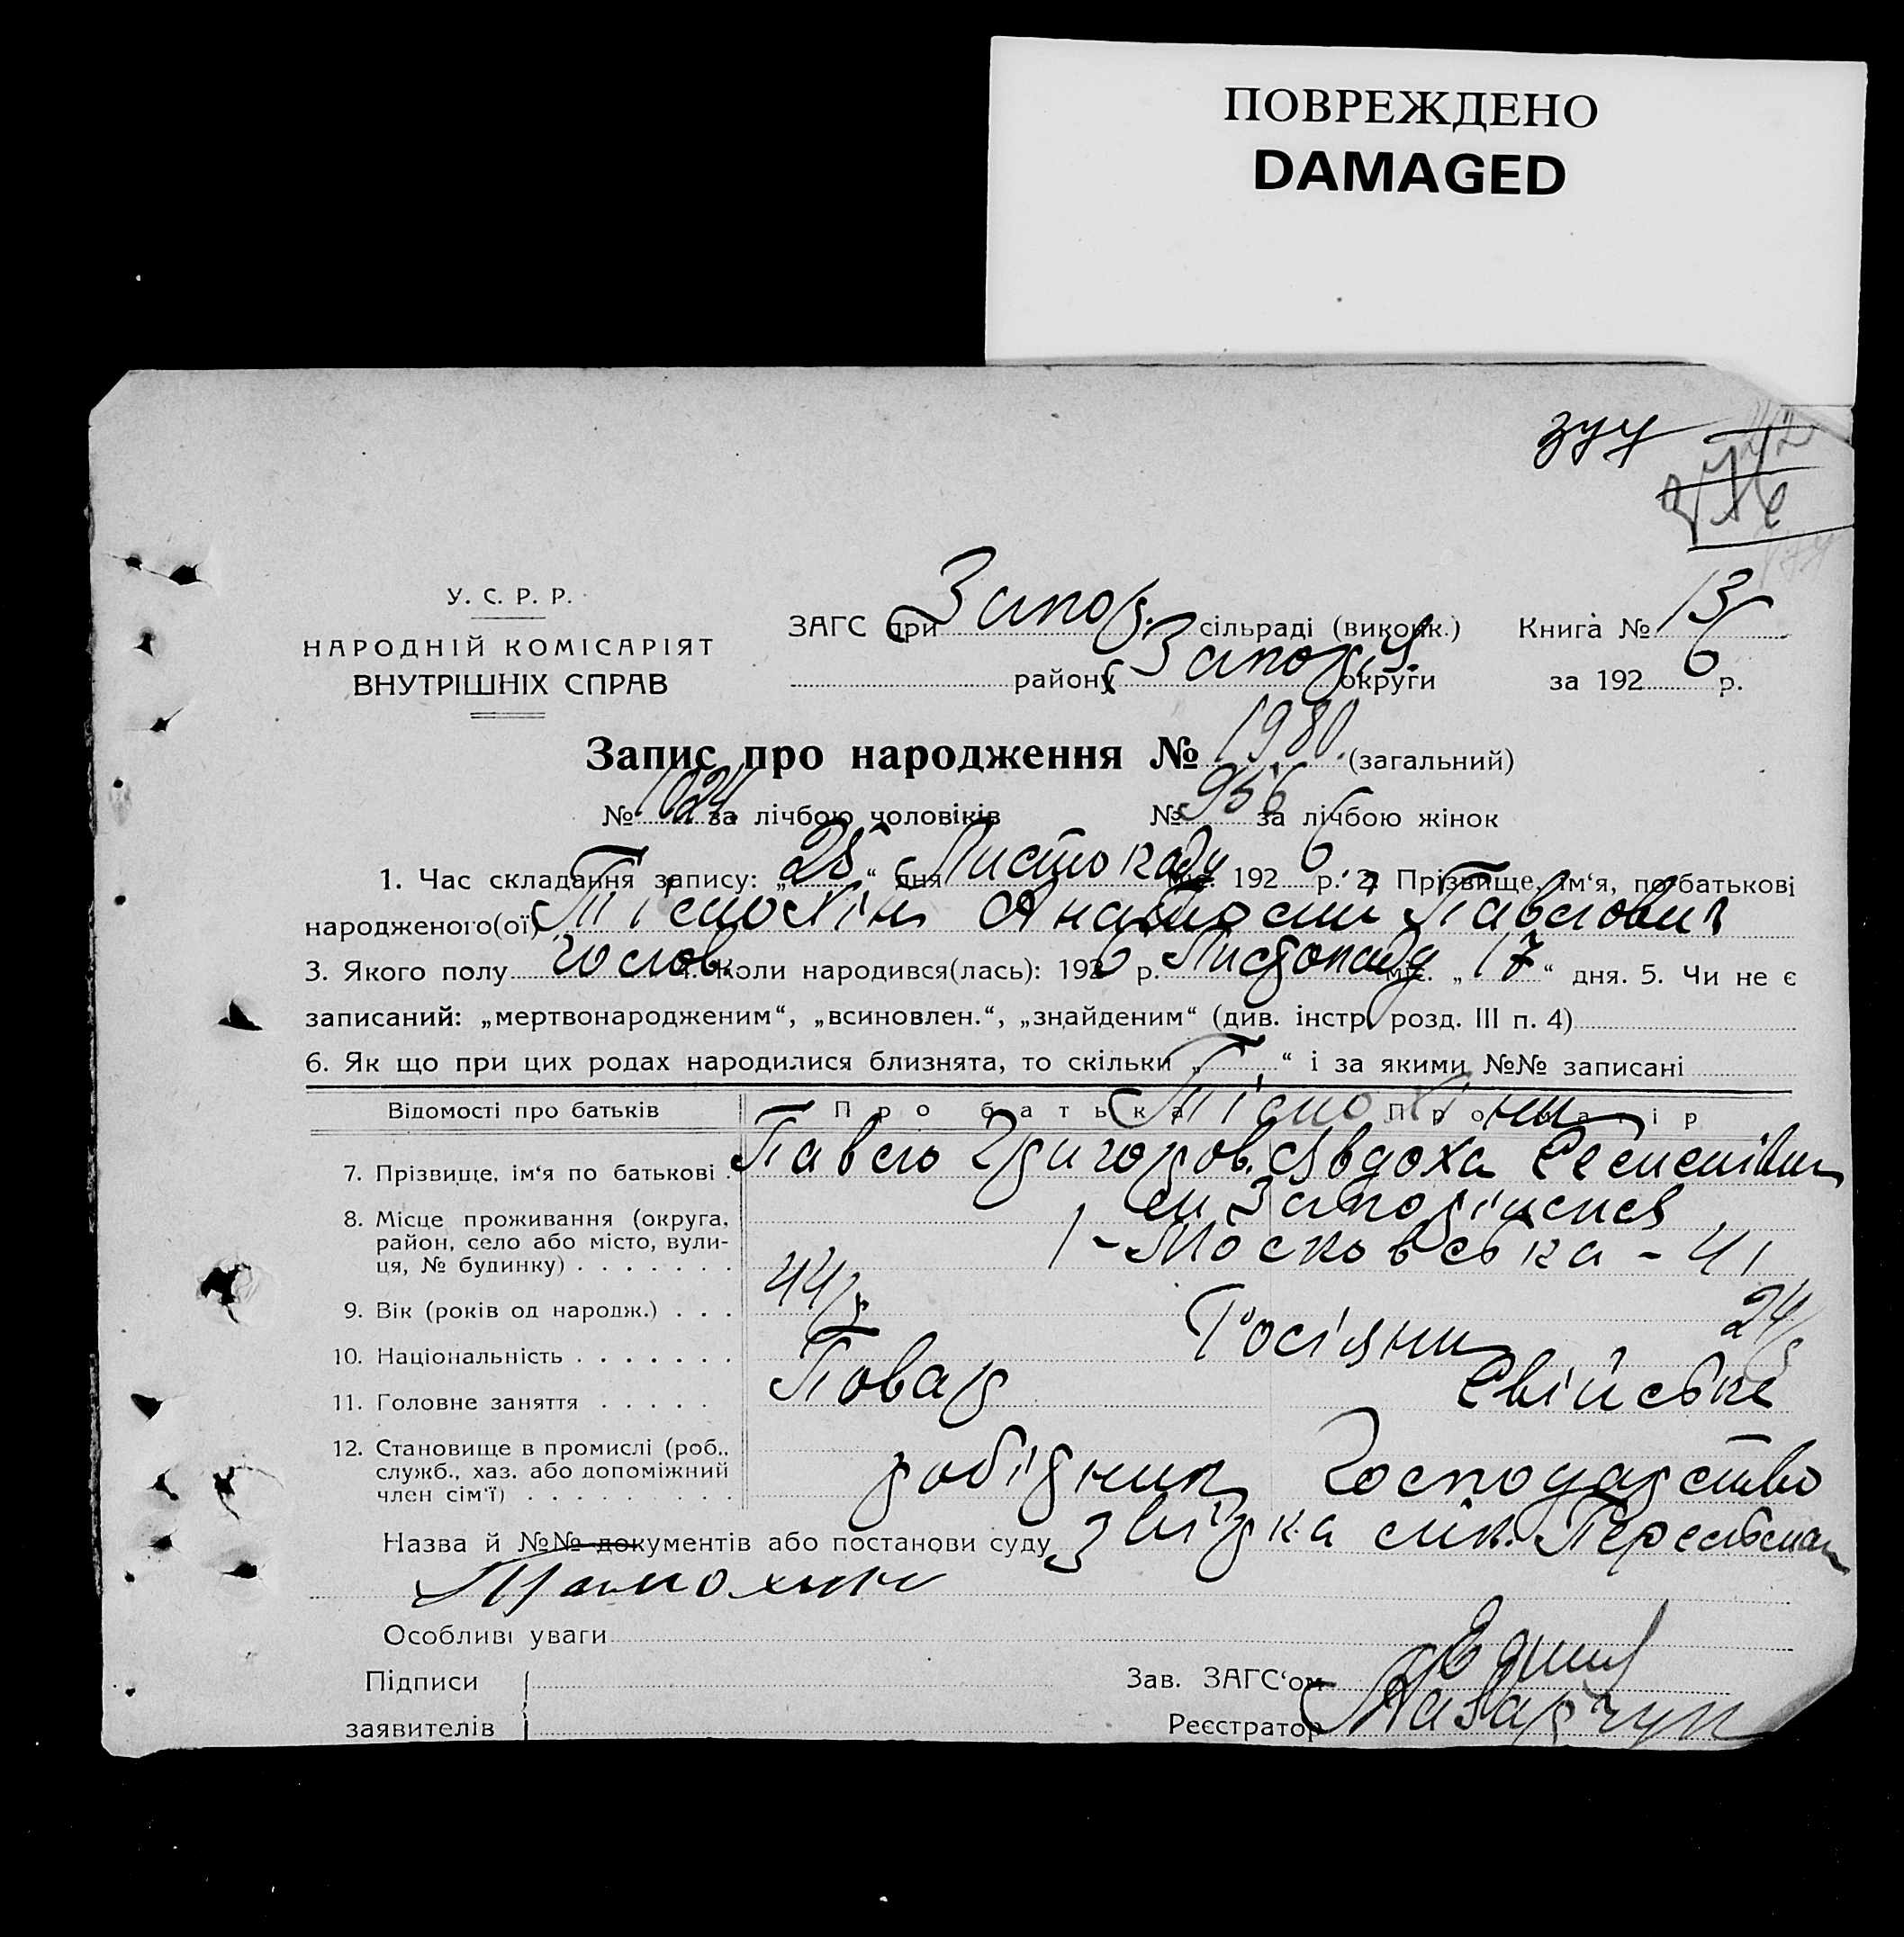 ПОВРЕЖДЕНО
DAMAGED
У. С. Р. Р.
НАРОДНІЙ КОМІСАРІЯТ
ВНУТРІШНІХ СПРАВ
ЗАГС при Запор. сільраді (виконк.) Книга № 13
району Запоріз. округи за 1926 р.
Запис про народження № 1980 (загальний)
№ 1024 за лічбою чоловіків № 956 за лічбою жінок
1. Час складання запису: „25“ дня Листопаду міс. 1926 р. 2. Прізвище, ім‘я, по-батькові
народженого(ої) Анатолій Павлович
3. Якого полу чолов. 4. Коли народився(лась): 1926 р. Листопаду міс. „17“ дня. 5. Чи не є
записаний: „мертвонародженим“, „всиновлен.“, „знайденим“ (див. інстр. розд. III п. 4)
6. Як що при цих родах народилися близнята, то скільки „ “ і за якими №№ записані
Відомості про батьків Про батька Про матір
7. Прізвище, ім‘я по батькові . Павло Григоров. Явдоха Семенівна
8. Місце проживання (округа, м Запоріжжя
район, село або місто, вули- Московська - 41
ця, № будинку) . . . . . . .
9. Вік (років од народж.) . . . 44 24
10. Національність . . . . . . . Росіяни
11. Головне заняття . . . . . Повар Свійське
12. Становище в промислі (роб., робірник Господарство
служб., хаз. або допоміжний
член сім‘ї) . . . . . . . . .
Назва й №№ документів або постанови суду
Особливі уваги
Підписи Зав. ЗАГС‘ом
заявителів Реєстратор